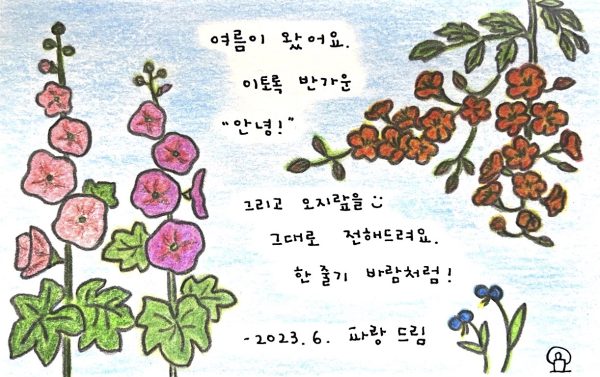 여름이 왔어요.
이토록 반가운
“안녕!”
그리고 오지랖을
그대로 전해드려요.
한 줄기 바람처럼!
-2023. 6. 파랑 드림